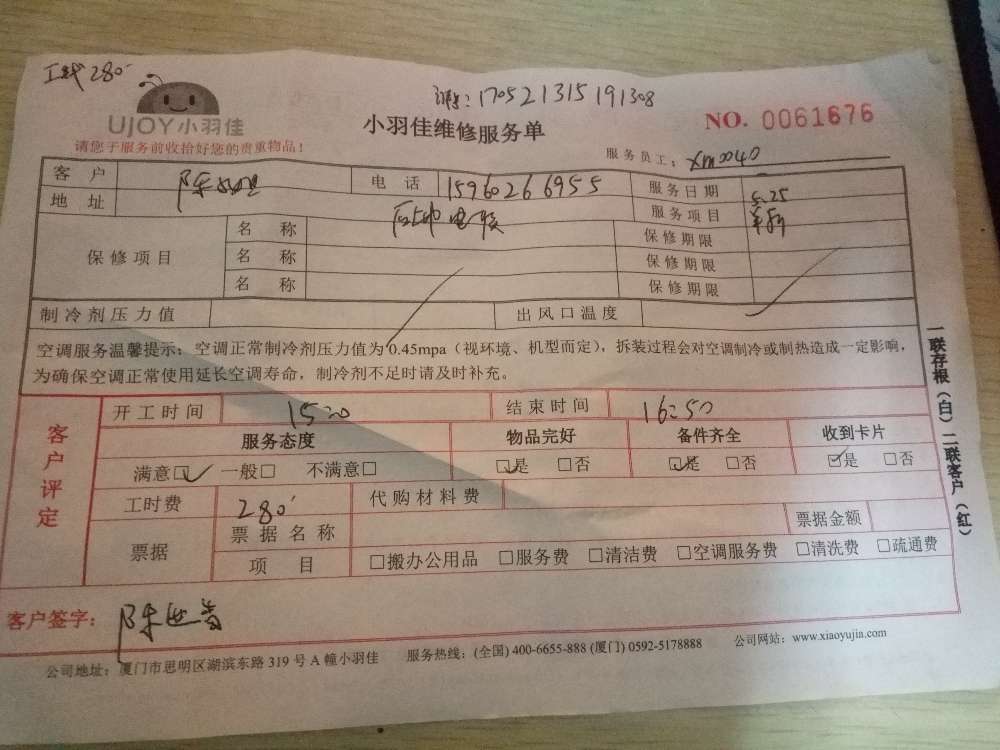 工钱280
UJOY小羽佳
请您于服务前收拾好您的贵重物品！
170521315191308
小羽佳维修服务单
NO. 0061676
服务员工：XM0040
客 户 陈 电 话 15960266955 服务日期 5.25
地 址 服务项目
保修项目 名 称 保修期限
名 称 保修期限
名 称 保修期限
制冷剂压力值 出风口温度
空调服务温馨提示：空调正常制冷剂压力值为 0.45mpa（视环境、机型而定），拆装过程会对空调制冷或制热造成一定影响，
为确保空调正常使用延长空调寿命，制冷剂不足时请及时补充。
客户评定
开工时间 15:20 结束时间 16:50
服务态度 物品完好 备件齐全 收到卡片
满意□ 一般□ 不满意□ □是 □否 □是 □否 □是 □否
工时费 280 代购材料费
票据 票据名称 票据金额
项 目 □搬办公用品 □服务费 □清洁费 □空调服务费 □清洗费 □疏通费
客户签字：陈
公司地址：厦门市思明区湖滨东路 319 号 A 幢小羽佳 服务热线：(全国) 400-6655-888 (厦门) 0592-5178888 公司网站：www.xiaoyujia.com
一联存根（白）二联客户（红）